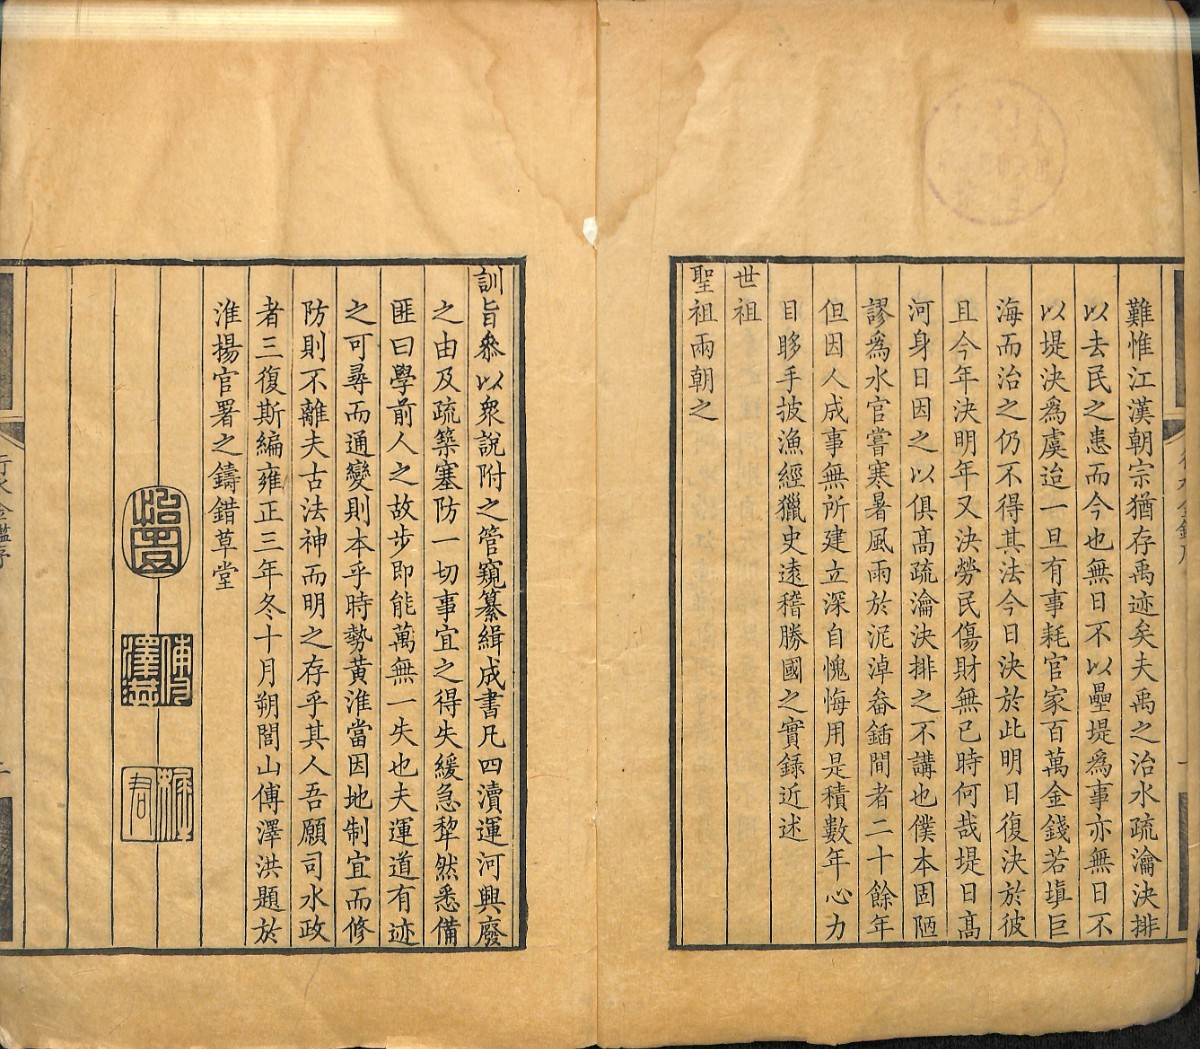 難惟江漢朝宗猶存禹迹矣夫禹之治水疏瀹決排
以去民之患而今也無日不以壘堤爲事亦無日不
以堤決爲虞迨一旦有事耗官家百萬金錢若塡巨
海而治之仍不得其法今日決於此明日復決於彼
且今年決明年又決勞民傷財無已時何哉堤日髙
河身日因之以俱髙疏瀹決排之不講也僕本固陋
謬爲水官嘗寒暑風雨於泥淖畚鍤間者二十餘年
但因人成事無所建立深自愧悔用是積數年心力
目眵手披漁經獵史遠稽勝國之實録近述
世祖
聖祖兩朝之
訓旨叅以衆說附之管窺纂緝成書凡四瀆運河興廢
之由及疏築塞防一切事宜之得失緩急犂然悉備
匪曰學前人之故步即能萬無一失也夫運道有迹
之可尋而通變則本乎時勢黄淮當因地制宜而修
防則不離夫古法神而明之存乎其人吾願司水政
者三復斯編雍正三年冬十月朔閭山傅澤洪題於
淮揚官署之鑄錯草堂
傅澤洪
行水金鑑序